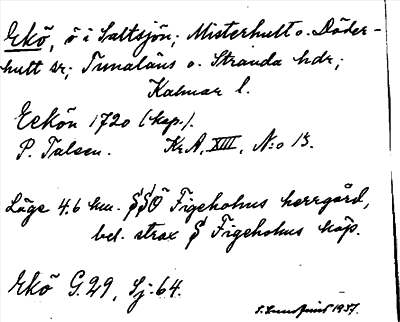 Ekö, ö i Saltsjön; Misterhult o. Döder-
hult sr; Tunaläns o. Stranda hdr;
Kalmar l.
Eckön 1720 (kop.).
P. Talsen. Kr.A. XIII, N:o 13.
Läge 4.6 km. SSO Figeholms herrgård,
bel. strax S Figeholms köp.
Ekö G.29, Sj:64.
1937.